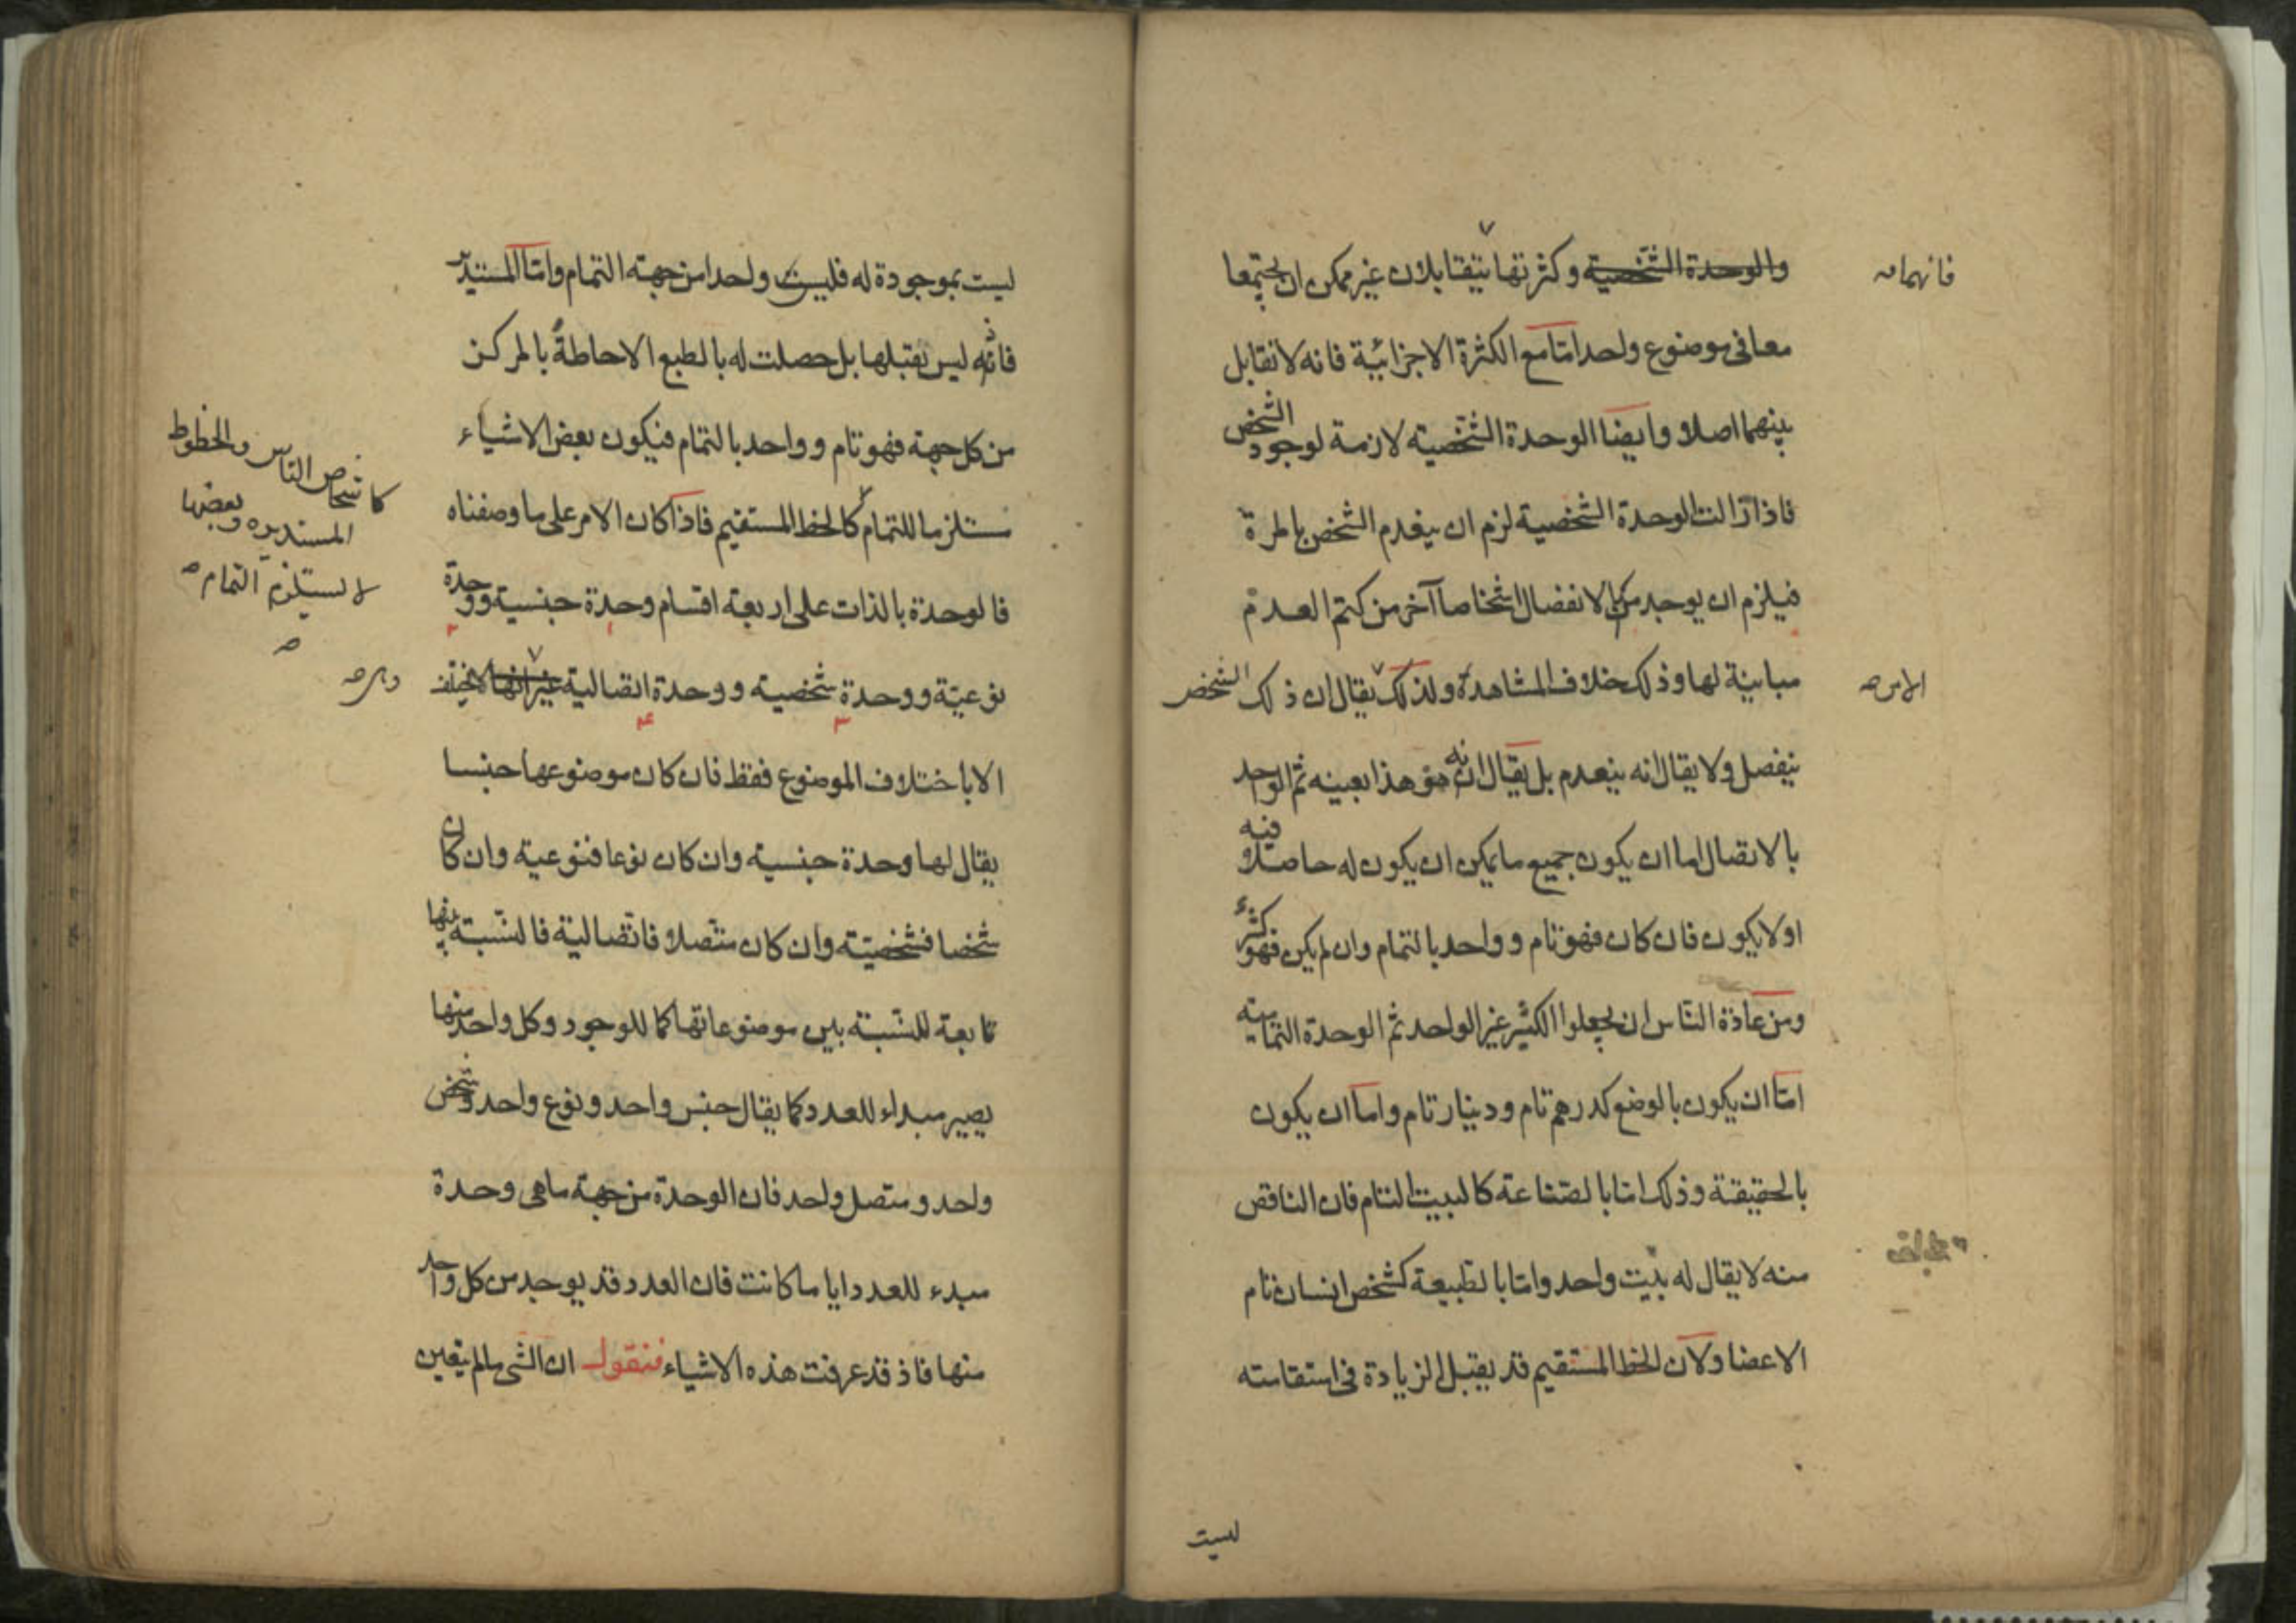 والوحدة الشخصية وكثرتها يتقابلان غير ممكن ان يجتمعا
فانهما صه
معا فى موضوع واحد امّا مع الكثرة الاجزائية فانه لا تقابل
بينهما اصلا وايضا الوحدة الشخصية لازمة لوجود الشخص
فاذا زالت الوحدة الشخصية لزم ان ينعدم الشخص بالمرة
فيلزم ان يوجد من الانفصال اشخاصا آخر من كتم العدم
مباينة لها وذلك خلاف المشاهدة ولذلك يقال ان ذلك الشخص
الامر صه
ينفصل ولا يقال انه ينعدم بل يقال انه هو هذا بعينه ثم الواحد
بالاتصال اما ان يكون جميع ما يمكن ان يكون له حاصلا فيه
او لا يكون فان كان فهو تام و واحد بالتمام وان لم يكن فهو كثير
ومن عادة النّاس ان يجعلوا الكثير غير الواحد ثم الوحدة التمامية
امّا ان يكون بالوضع كدرهم تام ودينار تام واما ان يكون
بالحقيقة وذلك امّا بالصّناعة كالبيت التام فان الناقص
منه لا يقال له بيت واحد وامّا بالطبيعة كشخص انسان تام
الاعضا ولان الخط المستقيم قد يقبل الزيادة فى استقامته
ليست
ليست بموجودة له فليس واحدا من جهة التمام وامّا المستدير
فانّه ليس يقبلها بل حصلت له بالطبع الاحاطة بالمركز
من كل جهة فهو تام و واحد بالتمام فيكون بعض الاشياء
مستلزما للتمام كالخط المستقيم فاذا كان الامر على ما وصفناه
كاشخاص الناس والخطوط
المستديره وبعضها
لا يستلزم التمام صه
صه
فالوحدة بالذات على اربعة اقسام وحدة جنسية ووحدة
نوعيّة ووحدة شخصية ووحدة اتصالية غير انها لا يختلف
الا باختلاف الموضوع فقط فان كان موضوعها جنسا
يقال لها وحدة جنسية وان كان نوعا فنوعية وان كان
شخصا فشخصيّة وان كان متّصلا فاتّصالية فالنّسبة بينها
تابعة للنّسبة بين موضوعاتها كما للوجود وكل واحد منها
يصير مبداء للعدد كما يقال جنس واحد ونوع واحد وشخص
واحد ومتصل واحد فان الوحدة من جهة ما هى وحدة
مبدء للعدد ايا ما كانت فان العدد قد يوجد من كل واحد
منها فاذ قد عرفت هذه الاشياء فنقول ان الشى ما لم يتعين